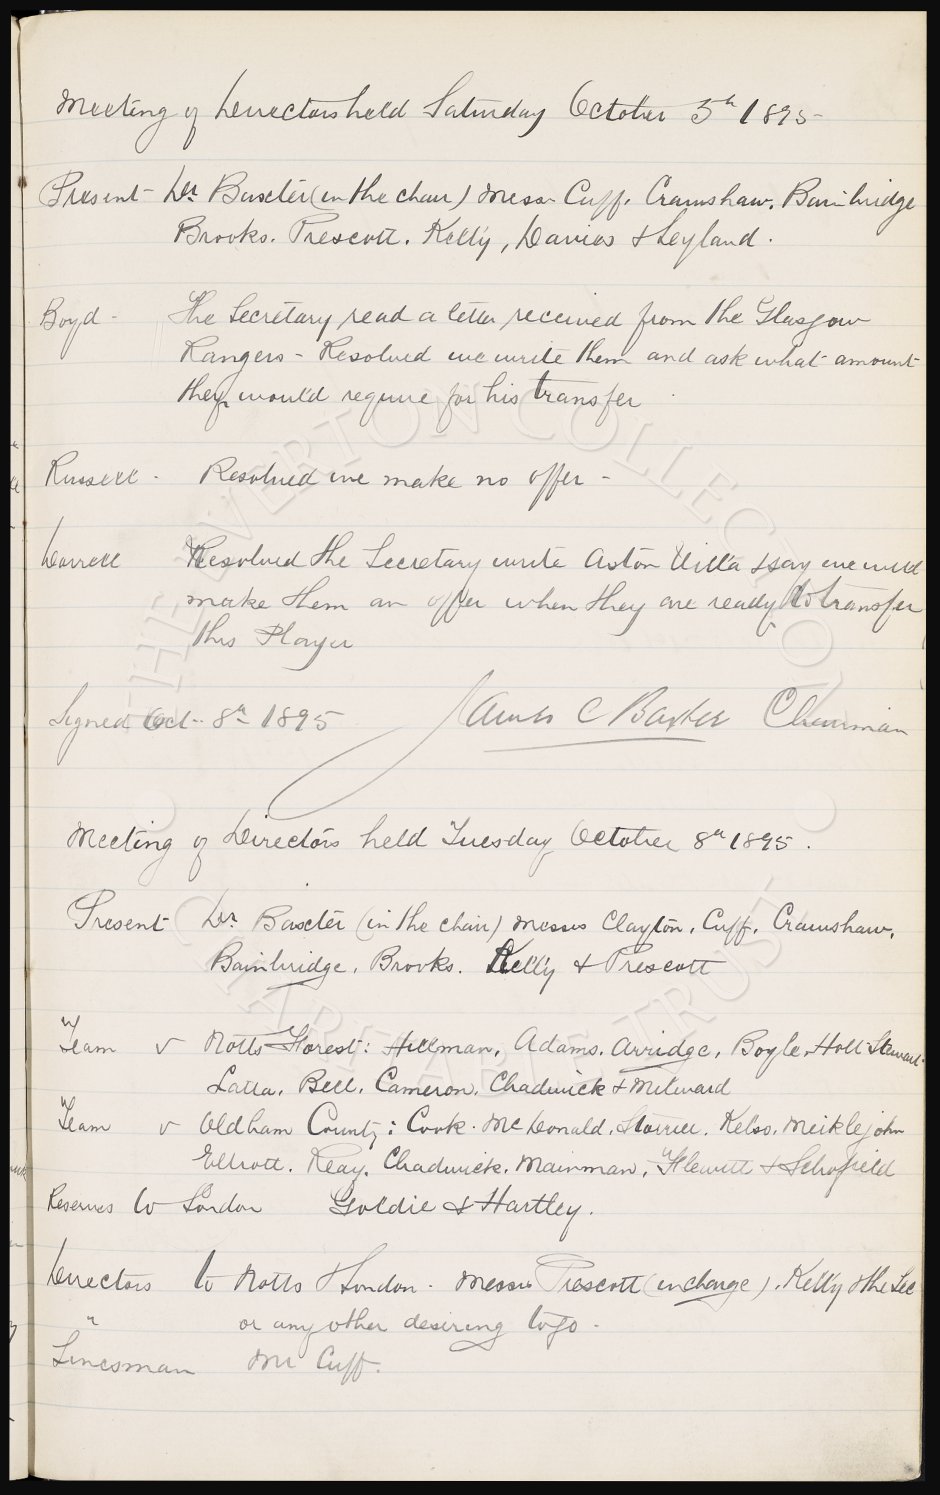 Meeting of Directors held Saturday October 5th 1895
Present - Dr. Baxter (in the chair) Messrs Cuff. Crawshaw. Bainbridge
Brooks. Prescott. Kelly, Davies & Leyland.
Boyd - The Secretary read a letter received from the Glasgow
Rangers - Resolved we write them and ask what amount
they would require for his transfer
Russell - Resolved we make no offer -
Dorrell Resolved the Secretary write Aston Villa & say we will
make them an offer when they are ready to transfer
this Player
Signed Oct. 8th 1895 James C Baxter Chairman
Meeting of Directors held Tuesday October 8th 1895.
Present Dr. Baxter (in the chair) Messrs Clayton, Cuff, Crawshaw,
Bainbridge, Brooks. Kelly & Prescott
Team v Notts Forest: Hillman, Adams. Arridge, Boyle, Holt Stewart
Latta. Bell. Cameron. Chadwick & Milward
Team v Oldham County: Cook. McDonald. Storrier. Kelso. Meiklejohn
Elliott. Reay. Chadwick. Mainman. Flewitt & Schofield
Reserves to London Goldie & Hartley.
Directors to Notts & London. Messrs Prescott (in charge). Kelly & the Sec
" or any other desiring to go -
Linesman Mr Cuff.
THE EVERTON COLLECTION
CHARITABLE TRUST